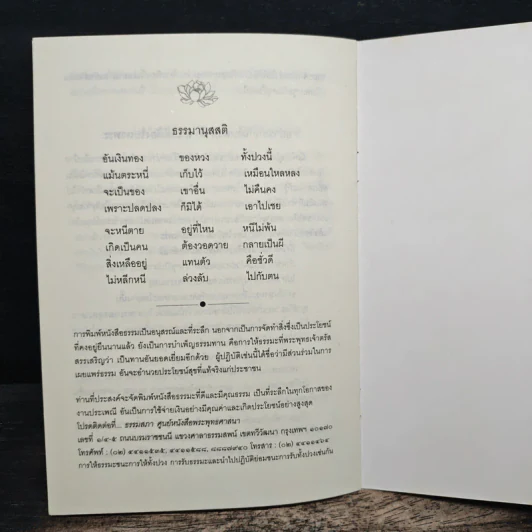 ธรรมานุสสติ
อันเงินทอง ของหวง ทั้งปวงนี้
แม้นตระหนี่ เก็บไว้ เหมือนไหลหลง
จะเป็นของ เขาอื่น ไม่คืนคง
เพราะปลดปลง ก็มิได้ เอาไปเชย
จะหนีตาย อยู่ที่ไหน หนีไม่พ้น
เกิดเป็นคน ต้องวอดวาย กลายเป็นผี
สิ่งเหลืออยู่ แทนตัว คือชั่วดี
ไม่หลีกหนี ล่วงลับ ไปกับตน
การพิมพ์หนังสือธรรมเป็นอนุสรณ์และที่ระลึก นอกจากเป็นการจัดทำสิ่งซึ่งเป็นประโยชน์
ที่คงอยู่ยืนนานแล้ว ยังเป็นการบำเพ็ญธรรมทาน คือการให้ธรรมะที่พระพุทธเจ้าตรัส
สรรเสริญว่า เป็นทานอันยอดเยี่ยมอีกด้วย ผู้ปฏิบัติเช่นนี้ได้ชื่อว่ามีส่วนร่วมในการ
เผยแพร่ธรรม อันจะอำนวยประโยชน์สุขที่แท้จริงแก่ประชาชน
ท่านที่ประสงค์จะจัดพิมพ์หนังสือธรรมะที่ดีและมีคุณธรรม เป็นที่ระลึกในทุกโอกาสของ
งานประเพณี อันเป็นการใช้จ่ายเงินอย่างมีคุณค่าและเกิดประโยชน์อย่างสูงสุด
โปรดติดต่อที่... ธรรมสภา ศูนย์หนังสือพระพุทธศาสนา
เลขที่ ๑/๔-๕ ถนนบรมราชชนนี แขวงศาลาธรรมสพน์ เขตทวีวัฒนา กรุงเทพฯ ๑๐๑๗๐
โทรศัพท์ : (๐๒) ๔๔๑๑๕๓๕, ๔๔๑๑๕๘๘, ๘๘๘๗๙๔๐ โทรสาร : (๐๒) ๔๔๑๑๔๖๔
การให้ธรรมะชนะการให้ทั้งปวง การรับธรรมะและนำไปปฏิบัติย่อมชนะการรับทั้งปวงเช่นกัน